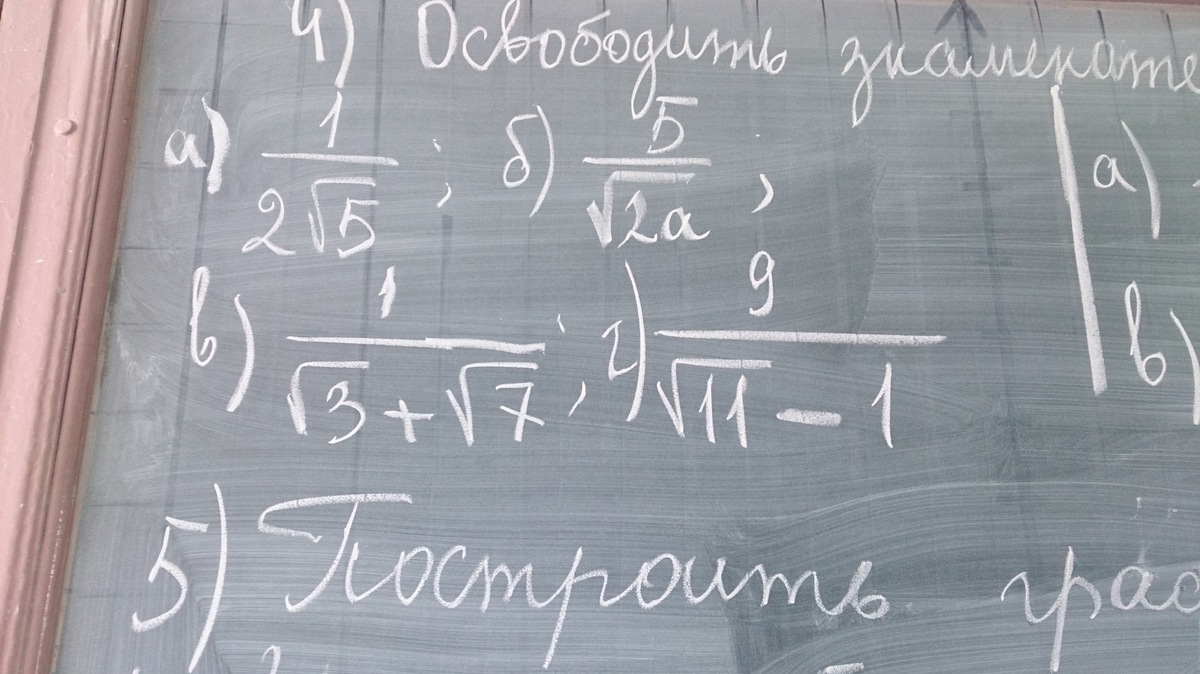 4) Освободить знаменате
а) 1/(2√5) ; б) 5/√(2a) ;
в) 1/(√3 + √7) ; г) 9/(√11 − 1)
а)
в)
5) Построить граф